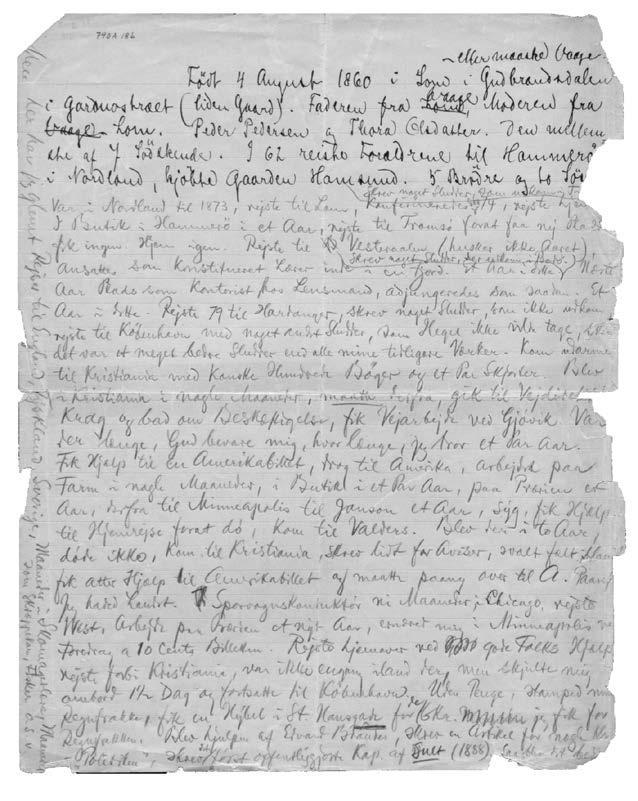 740A 186
eller maaske Vaage
Født 4 August 1860 i Lom i Gudbrandsdalen
i Garmostræet (liden Gaard). Faderen fra Lom, Vaage Moderen fra
Vaage Lom. Peder Pedersen og Thora Olsdatter. Den mellem
ste af 7 Södskende. I 62 rejste Forældrene til Hammerö
i Nordland, kjöbte Gaarden Hamsund. 5 Brödre og to Sös
skrev noget Sludder, som udkom i
Var i Nordland til 1873, rejste til Lom, Konfirmeredes 74, rejste hjem
I Butik i Hammerö i et Aar, rejste til Tromsö forat faa ny Plads
fik ingen. Hjem igen. Rejste til Vesteraalen (husker ikke Aaret)
skrev noget Sludder, der udkom i Bodö.
Ansattes som Konstitueret Lærer inde i en Fjord. Et Aar i dette Næste
Aar Plads som Kontorist hos Lensmand, adjungeredes som saadan. Et
Aar i dette. Rejste 79 til Hardanger, skrev noget Sludder, som ikke udkom
rejste til København med noget andet Sludder, som Hegel ikke vilde tage,
det var et meget bedre Sludder end alle mine tidligere Værker. Kom
til Kristiania med Kanske Hundrede Bøger og et Par Skjorter. Blev
i Kristiania i nogle Maaneder, gik til Vejdirektör
Krag og bad om Beskæftigelse, fik Vejarbejde ved Gjövik. Var
der længe, Gud bevare mig, hvor længe, jeg tror et Par Aar.
Fik Hjælp til en Amerikabillet, drog til Amerika, arbejded paa
Farm i nogle Maaneder, i Butik i et Par Aar, paa Prærien et
Aar, derfra til Minneapolis til Janson et Aar, Syg, fik Hjælp
til Hjemrejse forat dö, kom til Valders. Blev der i to Aar,
döde ikke, kom til Kristiania, skrev lidt for Aviser, svalt fælt,
fik atter Hjælp til Amerikabillet og maatte paany over til A. Paany
Jeg havde Laurst. Sporvognskonduktör ni Maaneder i Chicago, rejste
West, Arbejde paa Prærien et nyt Aar, endnu i Minneapolis
Foredrag a 10 Cents Billetten. Rejste hjemover ved gode Folks Hjælp
rejste forbi Kristiania, var ikke engang iland der, men skjulte mig
ombord 1½ Dag og fortsatte til København. Uden Penge, stamped min
Regnfrakke, fik en Hybel i St. Hansgade for de 6 Kr. jeg fik for
Regnfrakken. Blev hjulpen af Edvard Brandes, skrev en Artikel for nogle Kr
"Politiken", skrev det först offentliggjorte Kap. af Sult (1888)
har jeg glemt Rejser til England, Tyskland, Sverige, Maaneder i